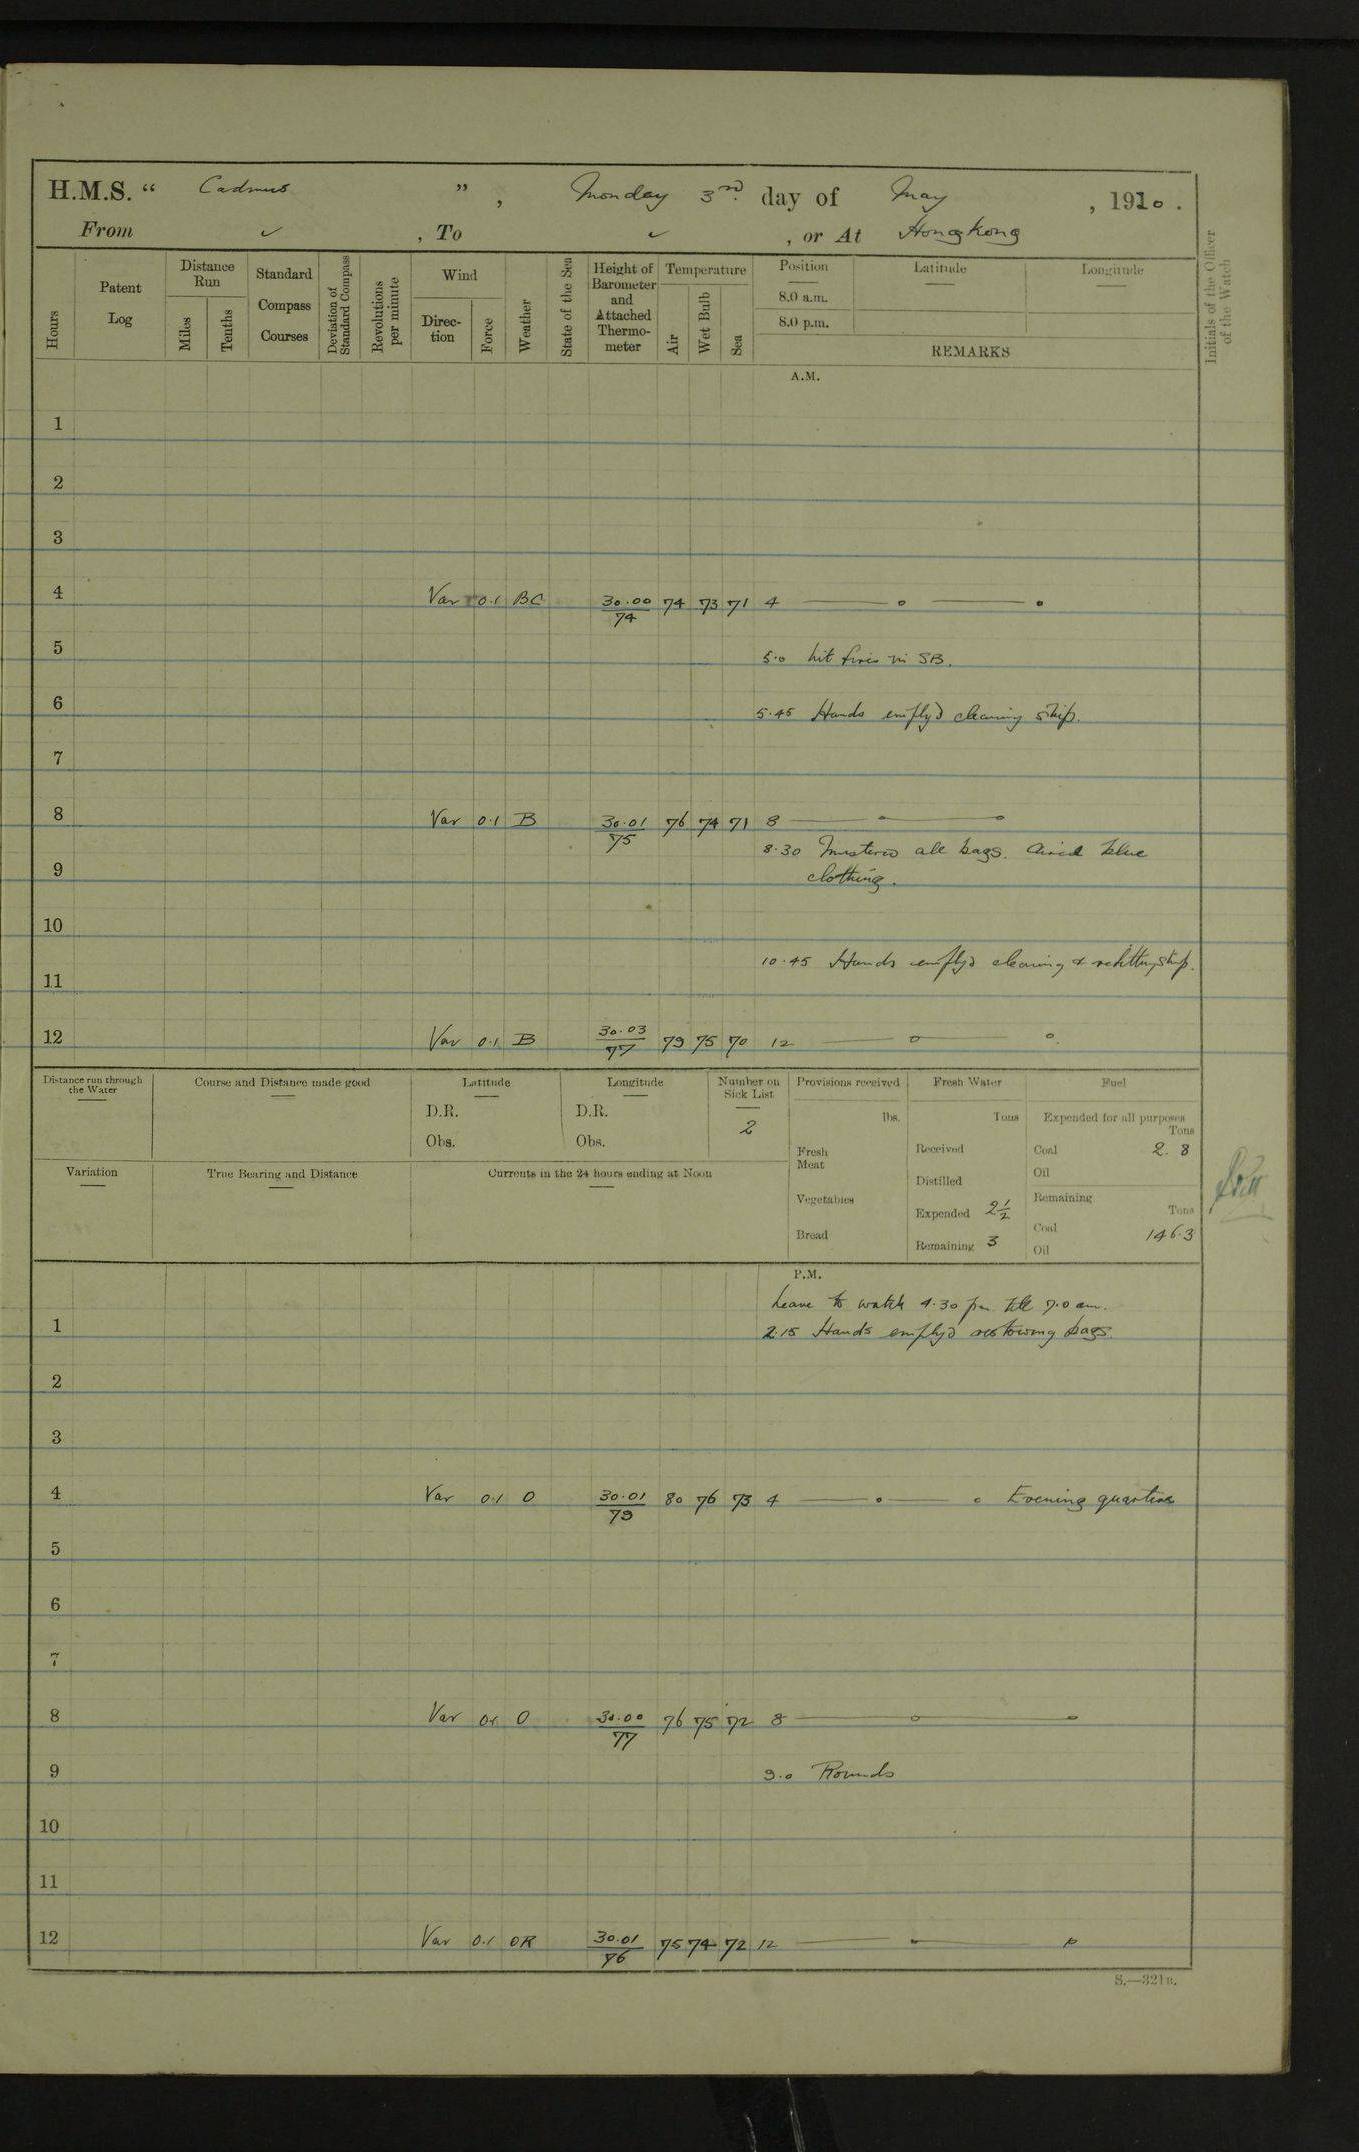 H.M.S. “ Cadmus ”, Monday 3rd. day of May, 1910.
From ✓, To ✓, or At Hongkong
Hours
Patent Log
Distance Run
Miles
Tenths
Standard Compass Courses
Deviation of Standard Compass
Revolutions per minute
Wind
Direc-tion
Force
Weather
State of the Sea
Height of Barometer and Attached Thermo-meter
Temperature
Air
Wet Bulb
Sea
Position
Latitude
Longitude
8.0 a.m.
8.0 p.m.
REMARKS
Initials of the Officer of the Watch
A.M.
1
2
3
4 Var 0.1 BC 30.00/74 74 73 71 4
5 5.0 lit fires in SB.
6 5.45 Hands emply'd cleaning ship.
7
8 Var 0.1 B 30.01/75 76 74 71 8
8.30 Mustered all bags. Aired blue
9 clothing.
10
10.45 Hands emply'd cleaning & refitting ship.
11
12 Var 0.1 B 30.03/77 79 75 70 12
Distance run through the Water
Course and Distance made good
Latitude
D.R.
Obs.
Longitude
D.R.
Obs.
Number on Sick List
2
Provisions received
lbs.
Fresh Meat
Vegetables
Bread
Fresh Water
Tons
Received
Distilled
Expended 2½
Remaining 3
Fuel
Expended for all purposes
Tons
Coal 2.8
Oil
Remaining
Tons
Coal 146.3
Oil
Variation
True Bearing and Distance
Currents in the 24 hours ending at Noon
P.M.
Leave to watch 4.30 pm till 7.0 am.
1 2.15 Hands emply'd restowing bags.
2
3
4 Var 0.1 O 30.01/79 80 76 73 4 Evening quarters
5
6
7
8 Var 0.1 O 30.00/77 76 75 72 8
9 9.0 Rounds
10
11
12 Var 0.1 OR 30.01/76 75 74 72 12
S.—321B.